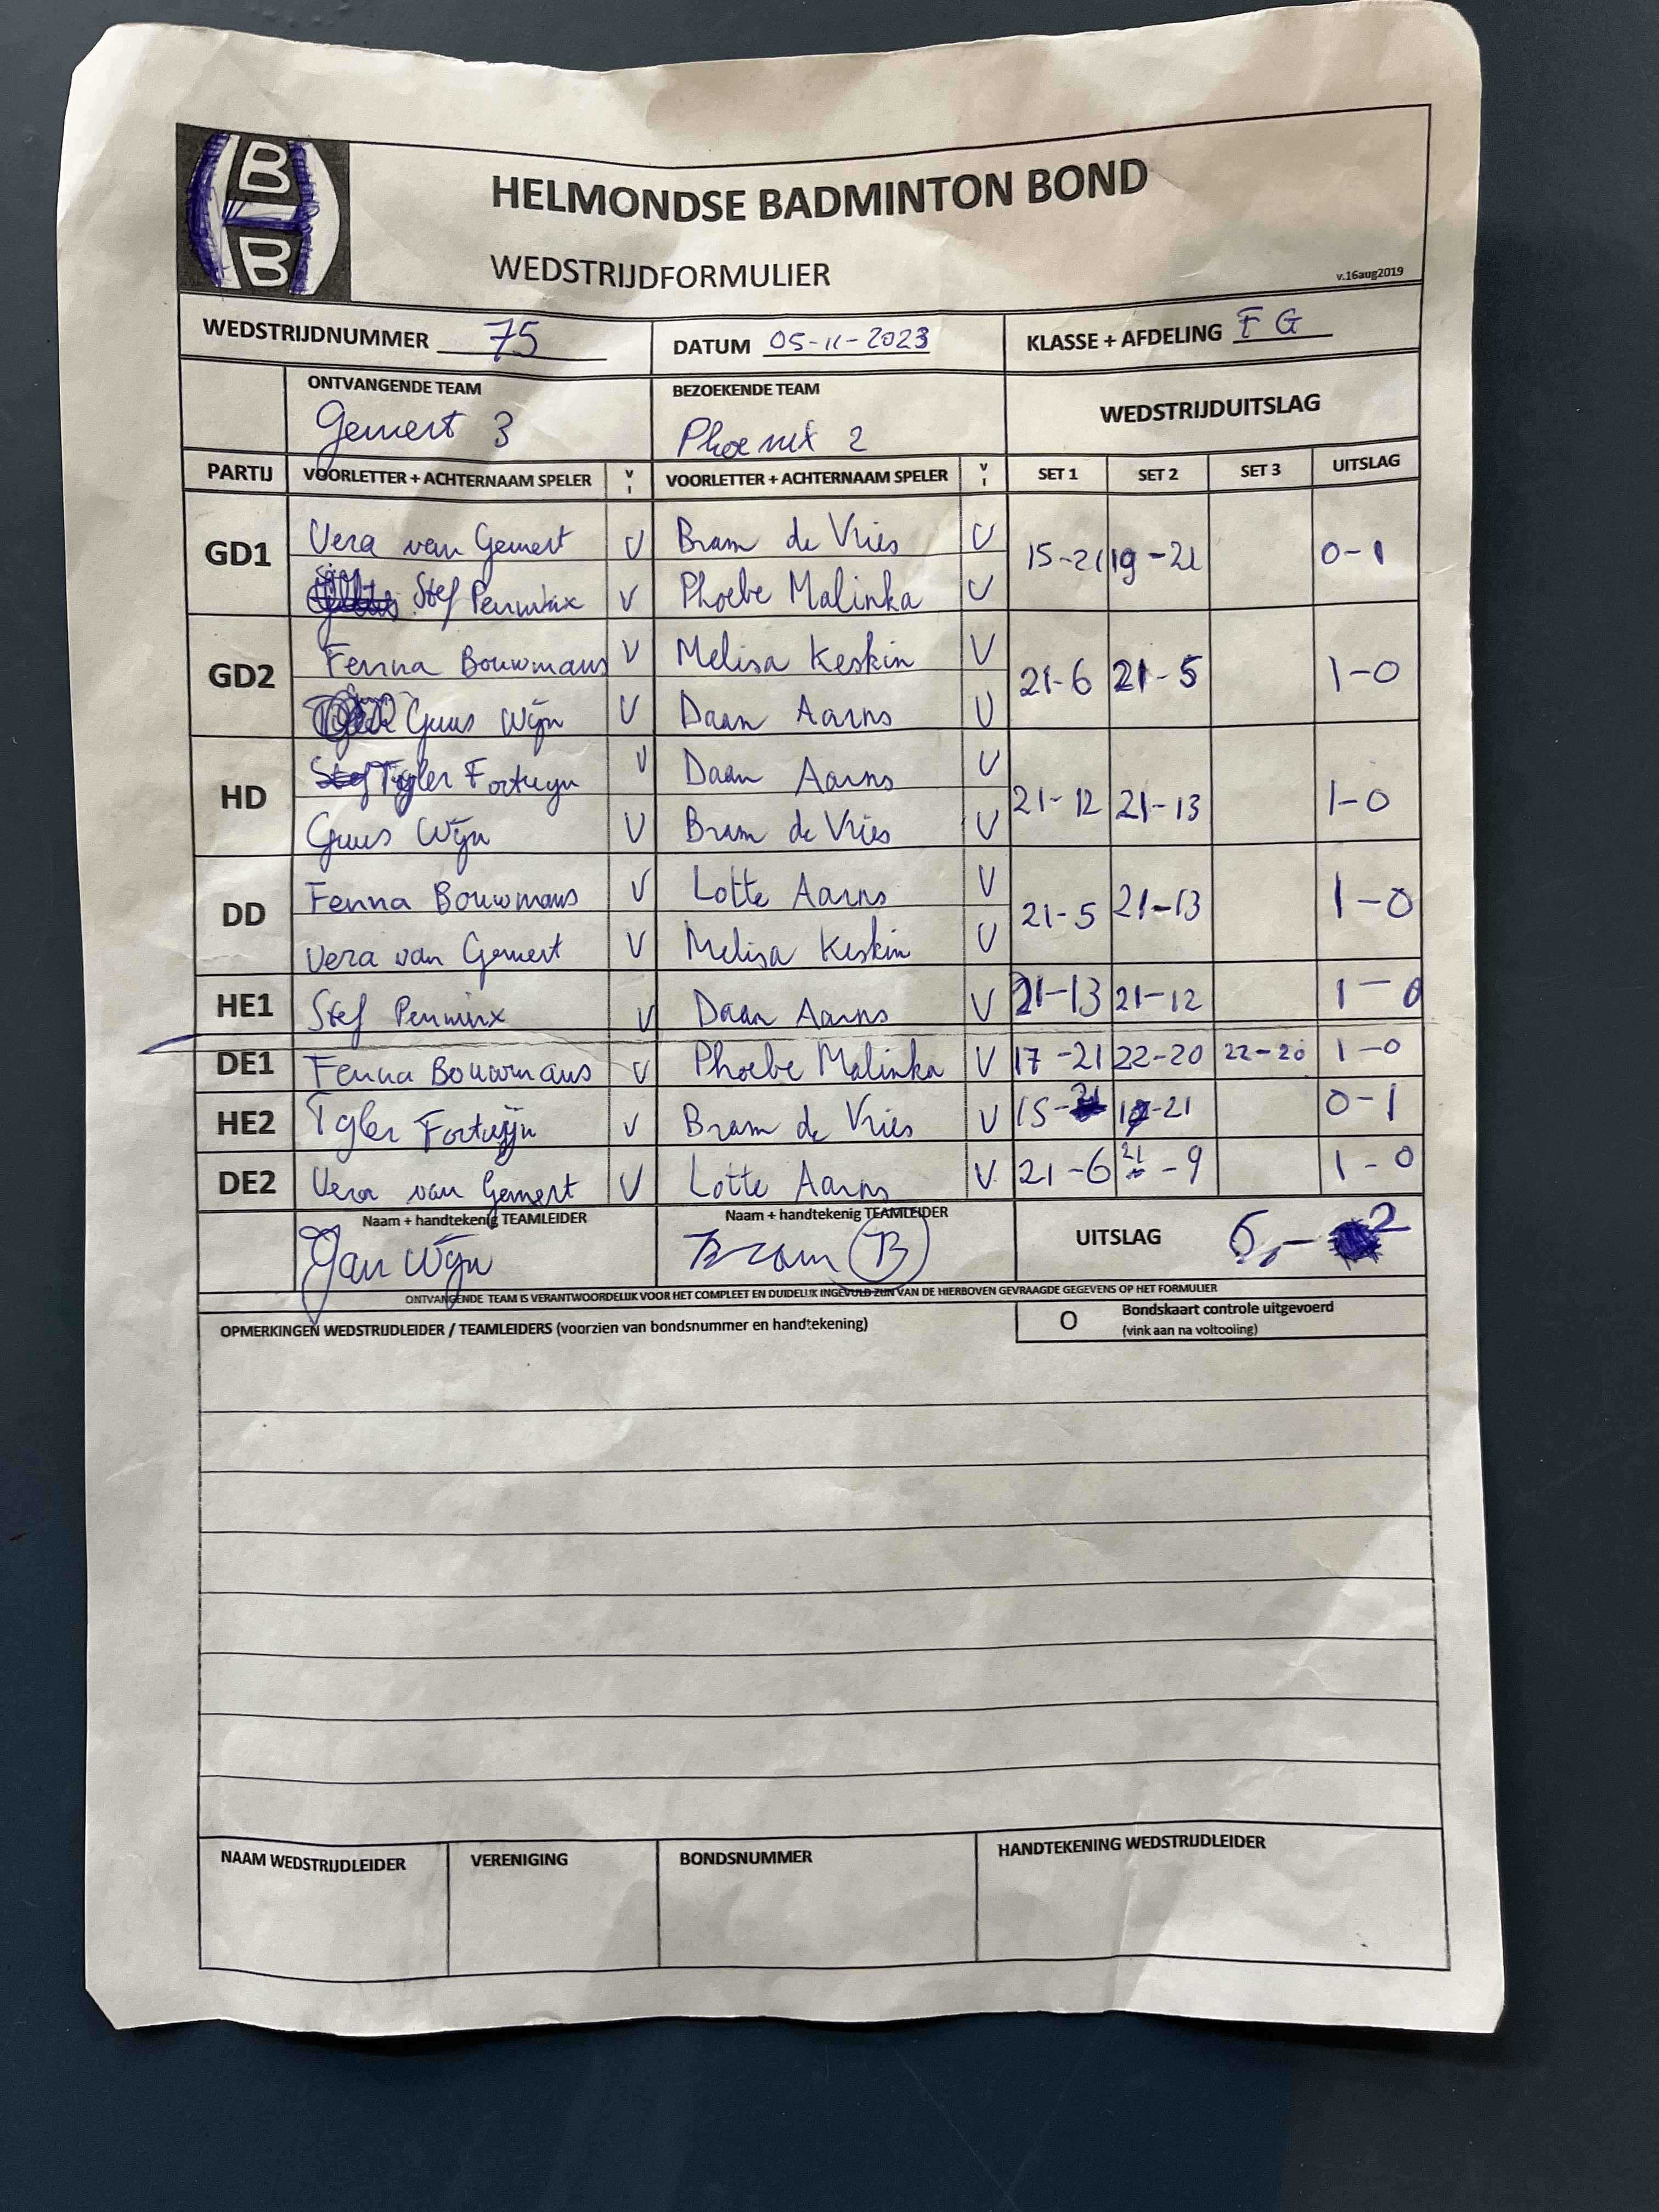 B
H
B
HELMONDSE BADMINTON BOND
WEDSTRIJDFORMULIER
v.16aug2019
WEDSTRIJDNUMMER 75 DATUM 05-11-2023 KLASSE + AFDELING F G
ONTVANGENDE TEAM BEZOEKENDE TEAM WEDSTRIJDUITSLAG
Gemert 3 Phoenix 2
PARTIJ VOORLETTER + ACHTERNAAM SPELER V I VOORLETTER + ACHTERNAAM SPELER V I SET 1 SET 2 SET 3 UITSLAG
GD1 Vera van Gemert V Bram de Vries V 15-21 19-21 0-1
Stef Penninx V Phoebe Malinka V
GD2 Fenna Bouwmans V Melisa Keskin V 21-6 21-5 1-0
Guus Wijn V Daan Aarns V
HD Tygler Fortuyn V Daan Aarns V 21-12 21-13 1-0
Guus Wijn V Bram de Vries V
DD Fenna Bouwmans V Lotte Aarns V 21-5 21-13 1-0
Vera van Gemert V Melisa Keskin V
HE1 Stef Penninx V Daan Aarns V 21-13 21-12 1-0
DE1 Fenna Bouwmans V Phoebe Malinka V 17-21 22-20 22-20 1-0
HE2 Tyler Fortuijn V Bram de Vries V 15-21 -21 0-1
DE2 Vera van Gemert V Lotte Aarns V 21-6 21-9 1-0
Naam + handtekenig TEAMLEIDER Naam + handtekenig TEAMLEIDER UITSLAG 6-2
Jan Wijn Bram B
ONTVANGENDE TEAM IS VERANTWOORDELIJK VOOR HET COMPLEET EN DUIDELIJK INGEVULD ZIJN VAN DE HIERBOVEN GEVRAAGDE GEGEVENS OP HET FORMULIER
OPMERKINGEN WEDSTRIJDLEIDER / TEAMLEIDERS (voorzien van bondsnummer en handtekening) O Bondskaart controle uitgevoerd
(vink aan na voltooiing)
NAAM WEDSTRIJDLEIDER VERENIGING BONDSNUMMER HANDTEKENING WEDSTRIJDLEIDER